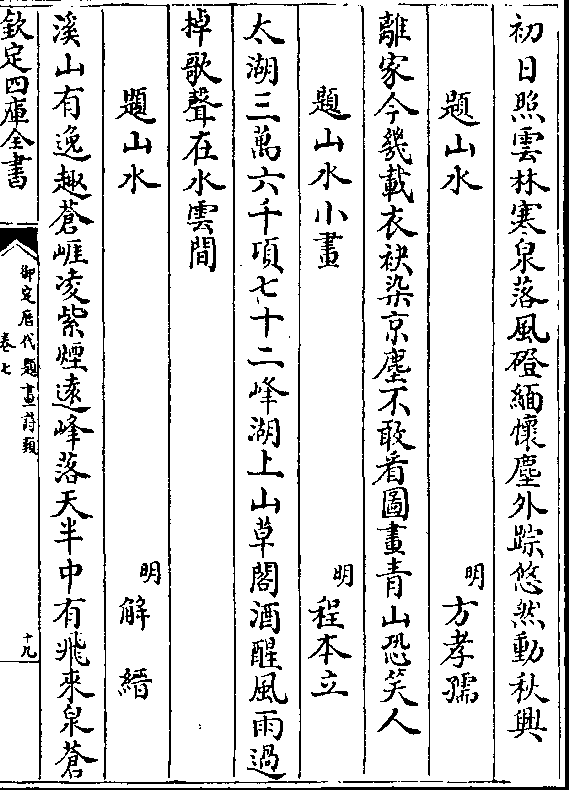 初日照雲林寒泉落風磴緬懷塵外踪悠然動秋興
題山水
明方孝孺
離家今幾載衣袂染京塵不敢看圖畫青山恐笑人
題山水小畫
明程本立
太湖三萬六千項七十二峰湖上山草閣酒醒風雨過
棹歌聲在水雲間
題山水
明解縉
溪山有逸趣蒼崕凌紫煙遠峰落天半中有飛來泉蒼
欽定四庫全書
御定歴代題畫詩類
卷七
十九